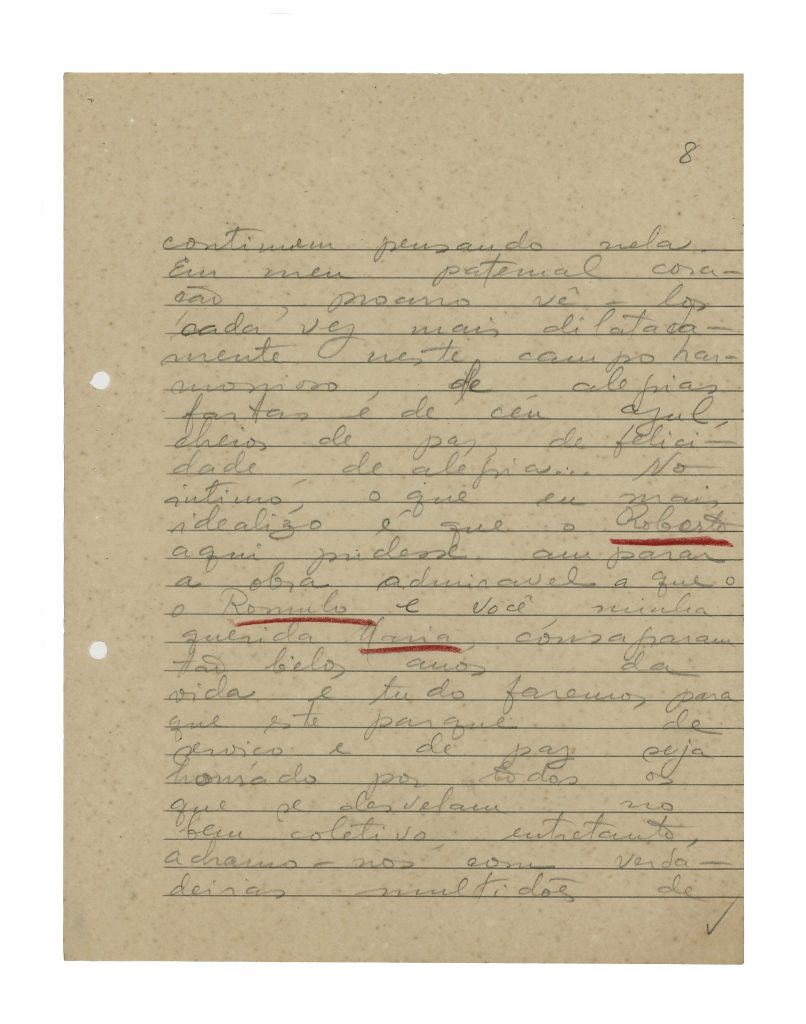 8
continuem pensando nela.
Em meu paternal cora-
ção, procuro vê-los
cada vez mais dilatada-
mente neste campo har-
monioso, de alegrias
fartas e de céu azul,
cheios de paz, de felici-
dade de alegria... No
intimo, o que eu mais
idealizo é que o Roberto
aqui pudesse amparar
a obra admiravel a que o
o Romulo e você minha
querida Maria, consagraram
tão belos anos da
vida e tudo faremos para
que este parque de
serviço e de paz seja
honrado por todos os
que se desvelam no
bem coletivo, entretanto,
achamo-nos com verda-
deiras multidões de